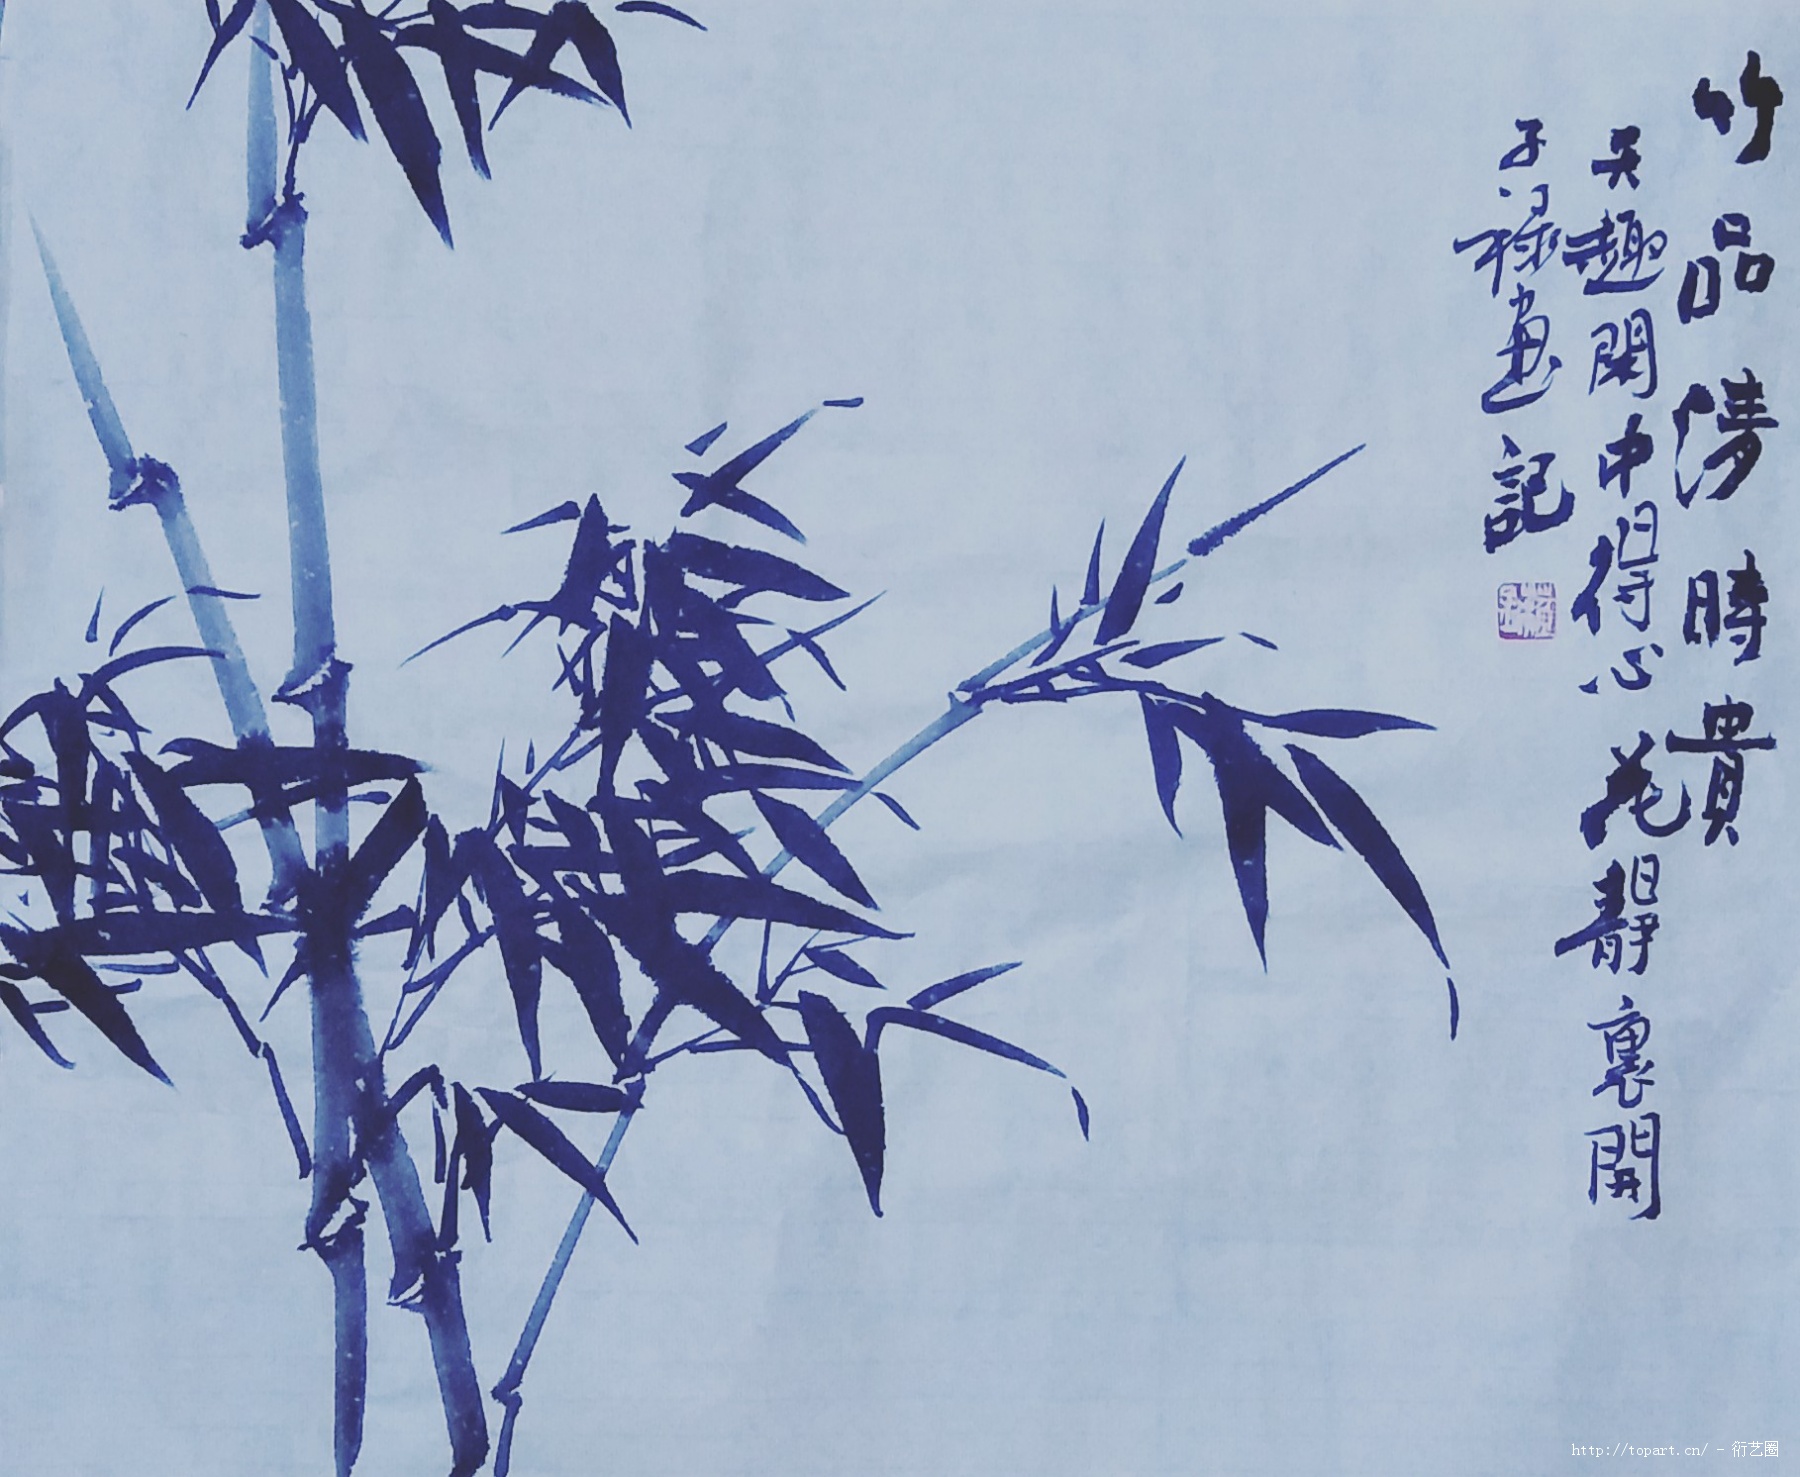 竹品清時貴
天趣閑中得心花靜裏開
子祿畫記
http://topart.cn/ - 衍艺圈